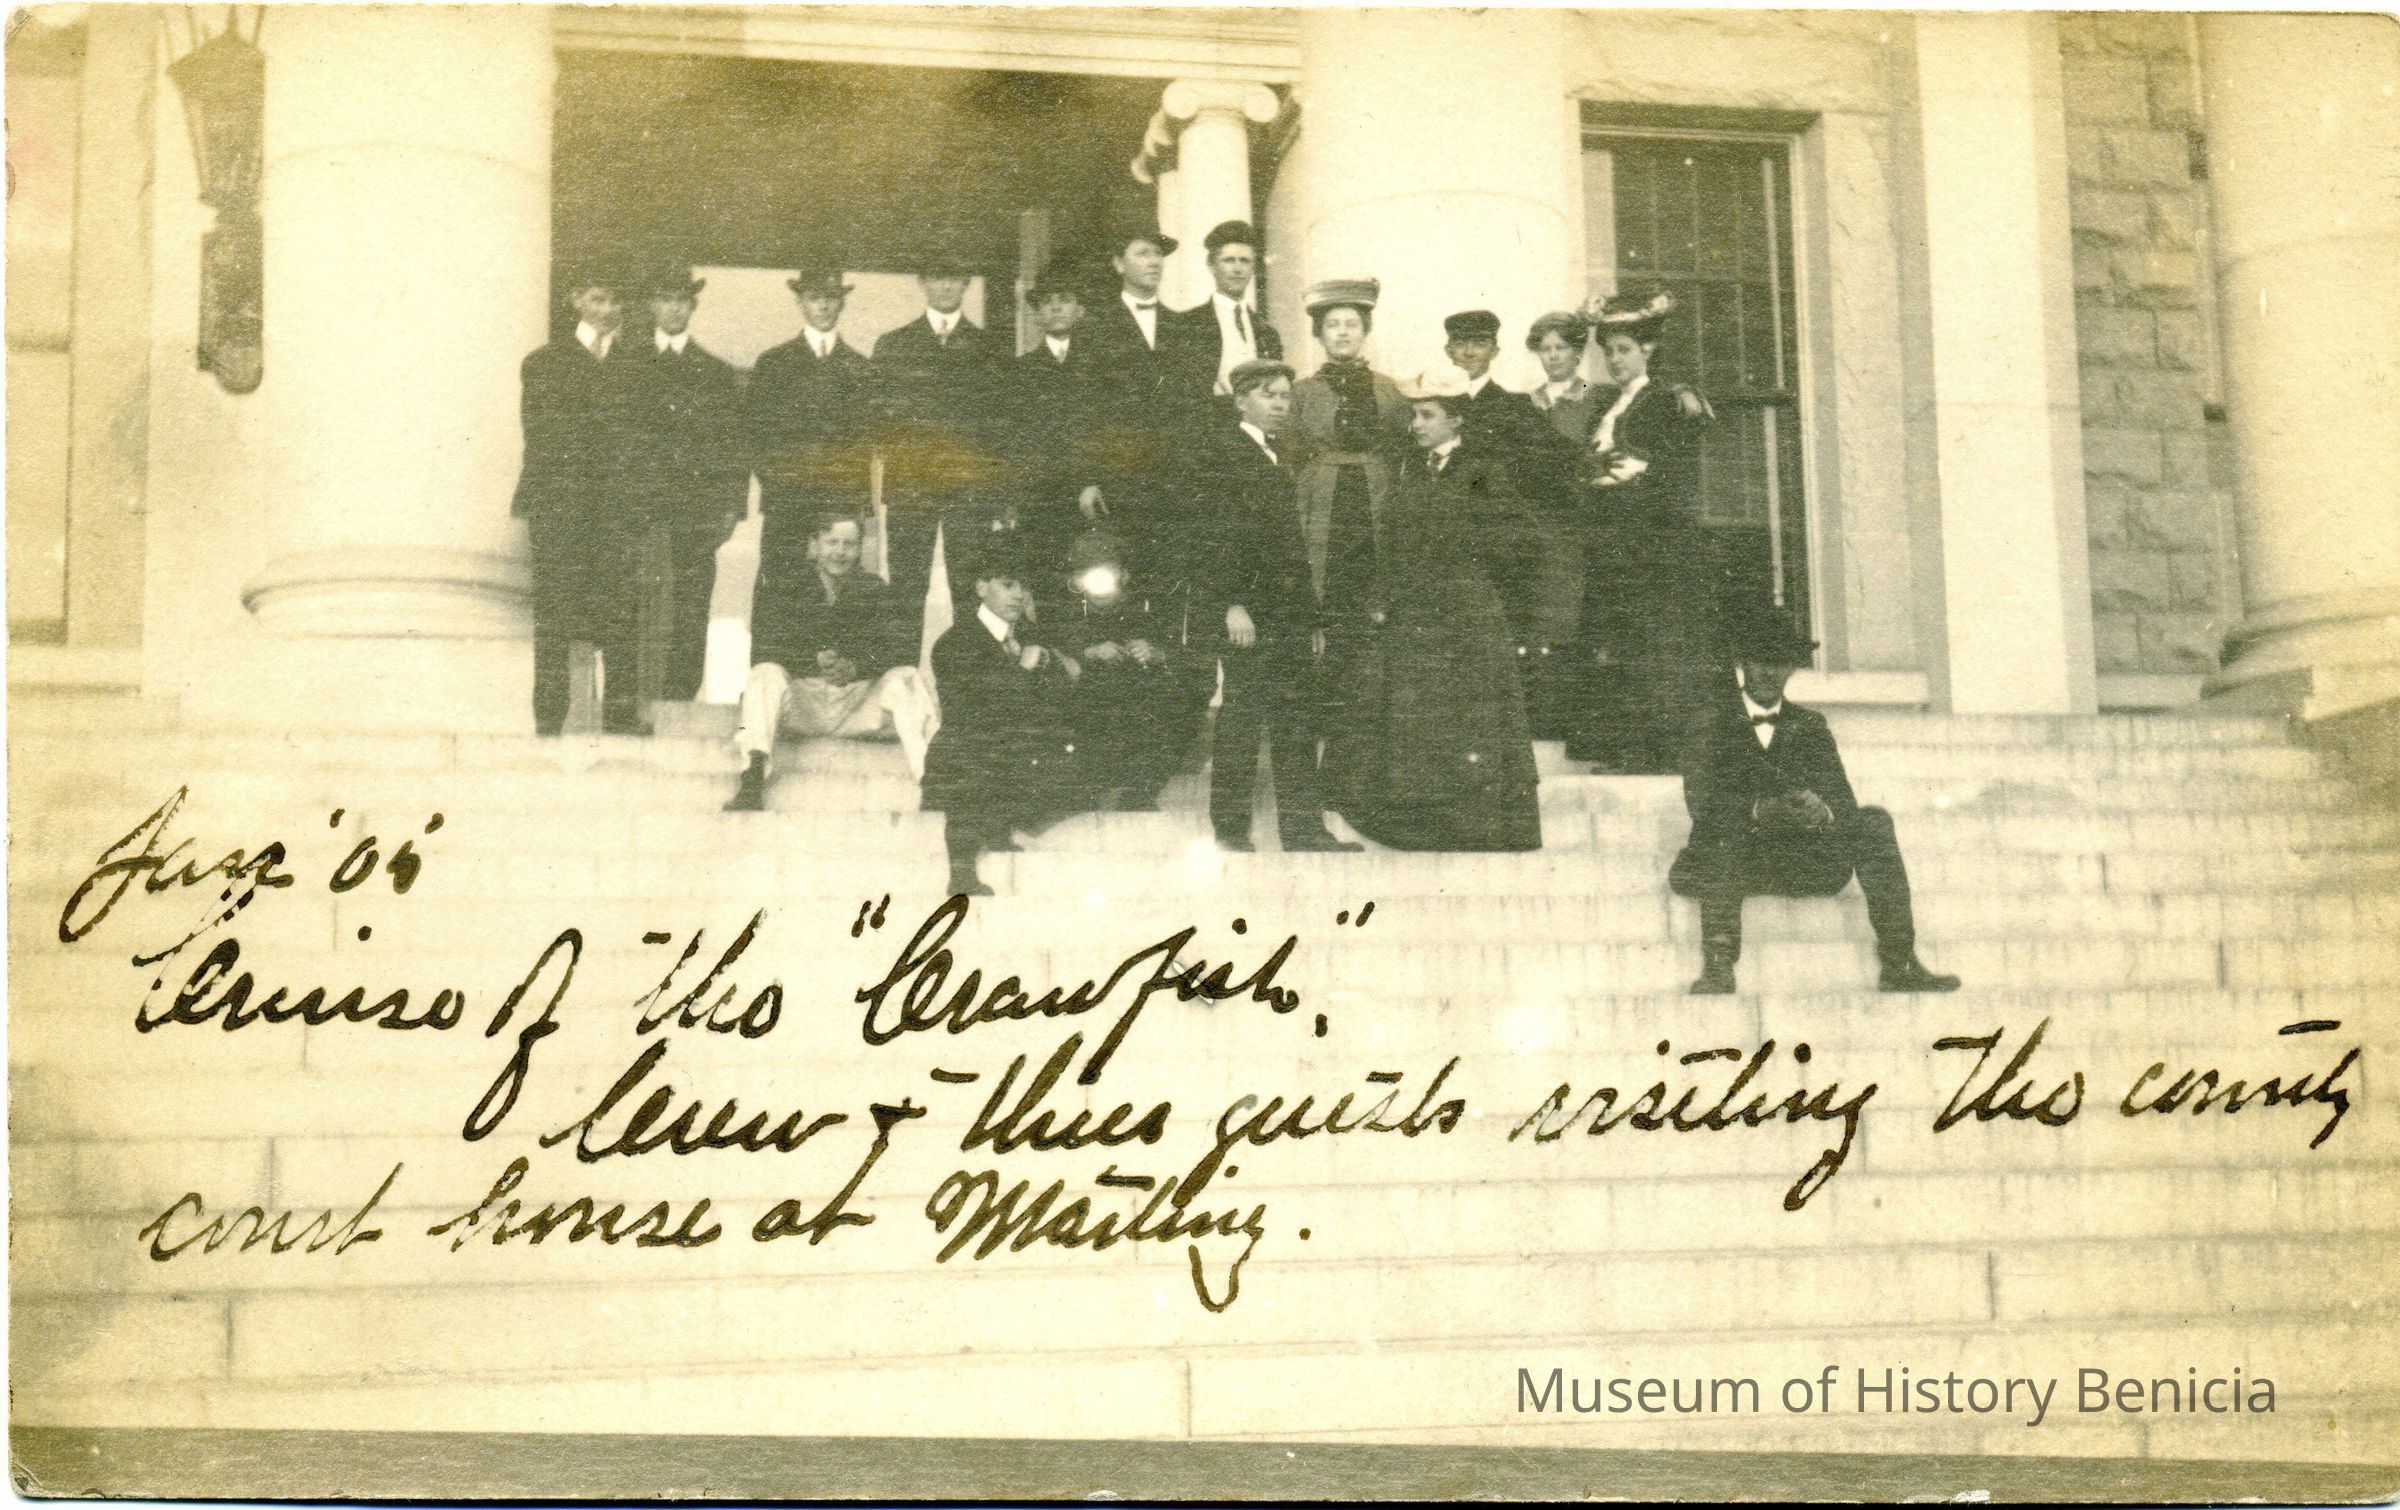 Jan '05'
Cruise of the "Crawfish",
Crew & thier guests visiting the county
court house at
Museum of History Benicia